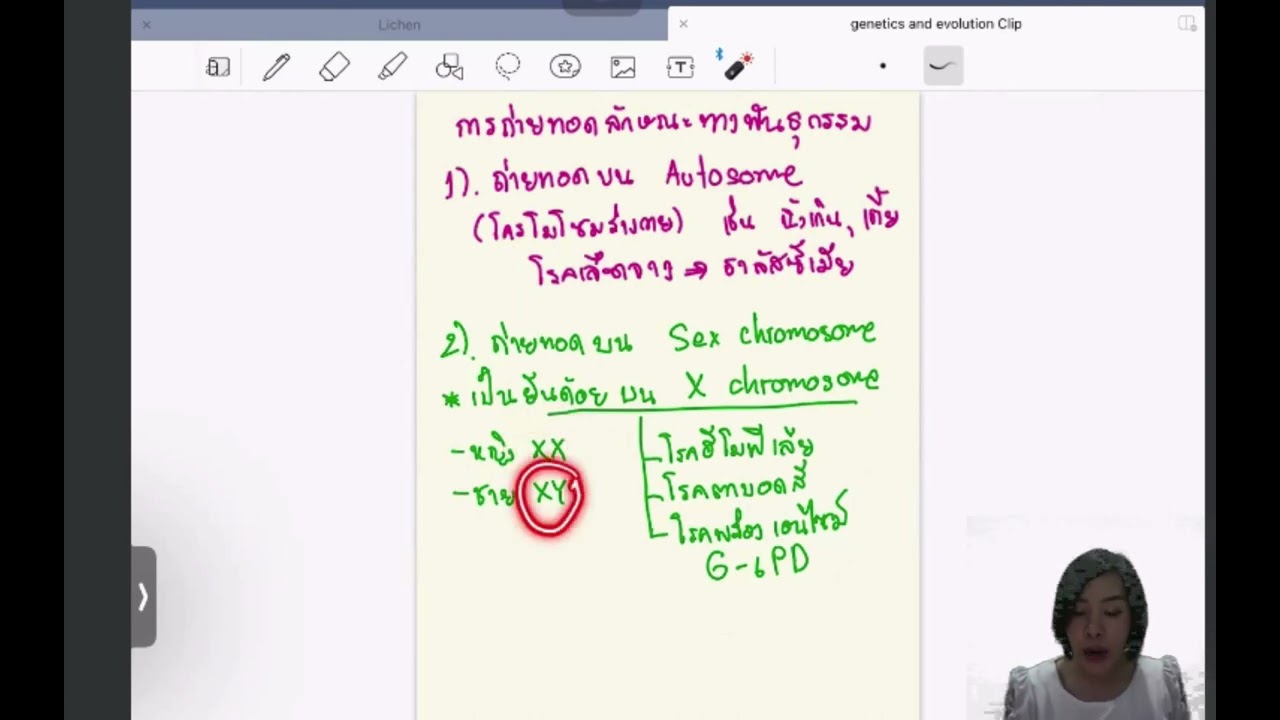 Lichen
genetics and evolution Clip
การถ่ายทอดลักษณะทางพันธุกรรม
1). ถ่ายทอดบน Autosome
(โครโมโซมร่างกาย) เช่น นิ้วเกิน, เตี้ย
โรคเลือดจาง → ธาลัสซีเมีย
2). ถ่ายทอดบน Sex chromosome
* เป็นยีนด้อย บน X chromosome
- หญิง XX
- ชาย XY
โรคฮีโมฟีเลีย
โรคตาบอดสี
โรคพร่องเอนไซม์
G-6PD